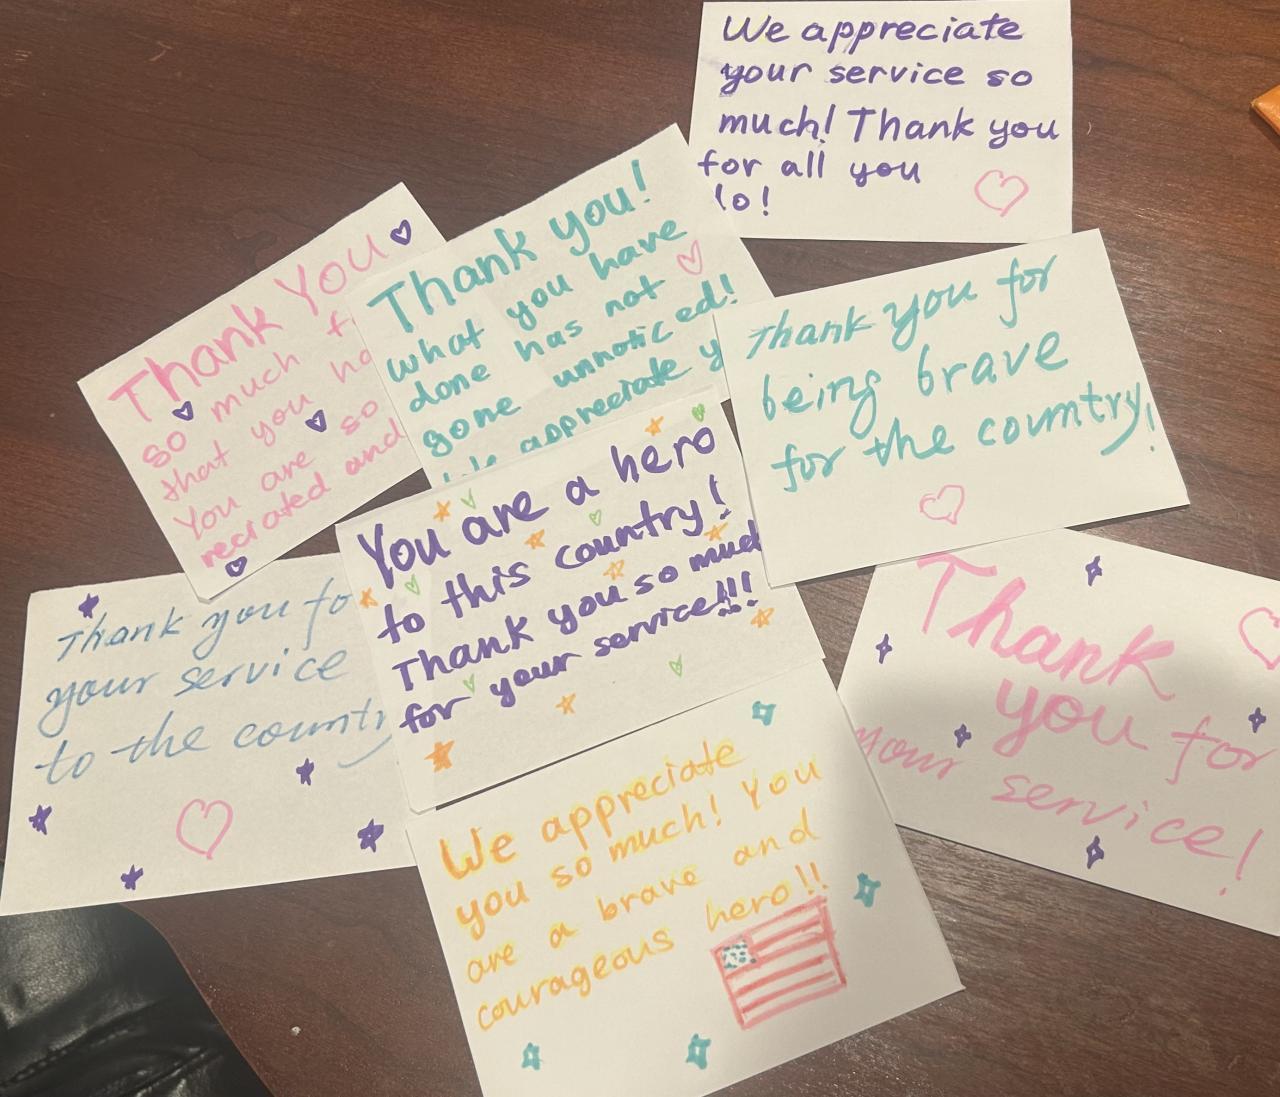 We appreciate
your service so
much! Thank you
for all you
Thank you!
what you have
done has not
gone unnoticed!
appreciate
Thank You
so much
that you
You are so
and
Thank you for
being brave
for the country!
You are a hero
to this country!
Thank you so much
for your service!!!
Thank you
your service
to the
Thank
you for
your
service!
We appreciate
you so much! You
are a brave and
courageous hero!!